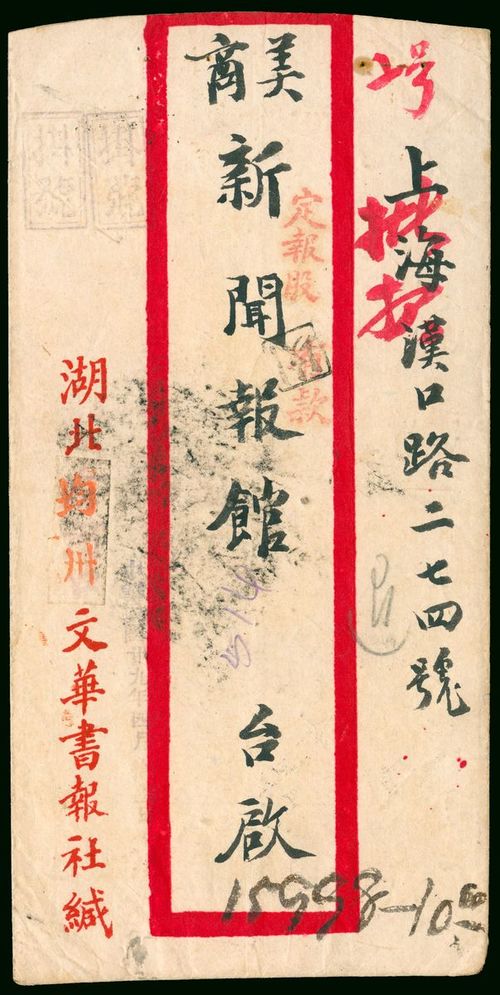 上海漢口路二七四號
掛號
美商
新聞報館 台啟
定報股
款
湖北均州文華書報社緘
15998-10